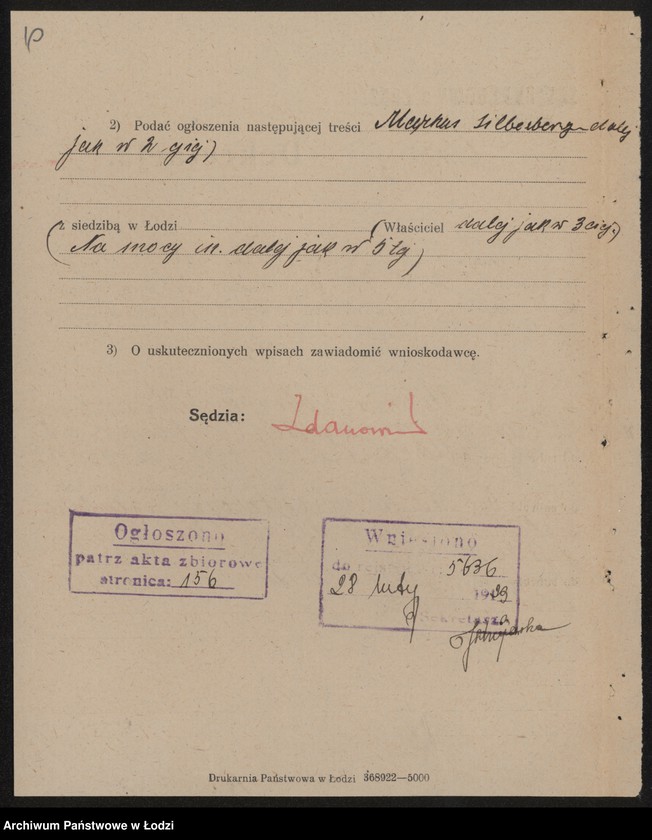 2) Podać ogłoszenia następującej treści Markus Silberberg - dalej
jak w 2 giej)
z siedzibą w Łodzi (Właściciel dalej jak w 3 ciej)
(Na mocy in. dalej jak w 5 tej)
3) O uskutecznionych wpisach zawiadomić wnioskodawcę.
Sędzia:
Ogłoszono
patrz akta zbiorowe
stronica: 156
Wniesiono
do 5636
28 luty 19
Sekretarz
Drukarnia Państwowa w Łodzi 368922—5000
Archiwum Państwowe w Łodzi